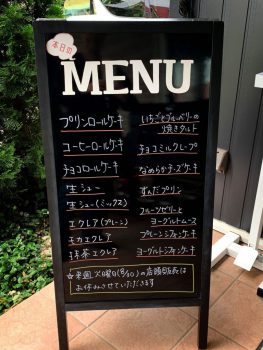 本日の
MENU
プリンロールケーキ
コーヒーロールケーキ
チョコロールケーキ
生シュー
生シュー(ミックス)
エクレア(プレーン)
モカエクレア
抹茶エクレア
いちごとブルーベリーの
焼きタルト
チョコミルクレープ
なめらかチーズケーキ
ずんだプリン
フルーツゼリーと
ヨーグルトムース
プレーンシフォンケーキ
ヨーグルトシフォンケーキ
☆来週、火曜日(8/10)の店頭販売は
お休みさせていただきます